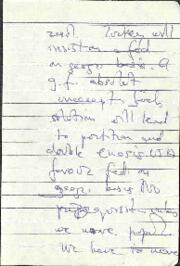 and. Turkey will
insist on a fed
on geogr. basis. A
g.f. absolut
unaccept. Such
solution will lead
to partition and
double enosis. USA
favour fed. on
geogr. basis
we
We have to move